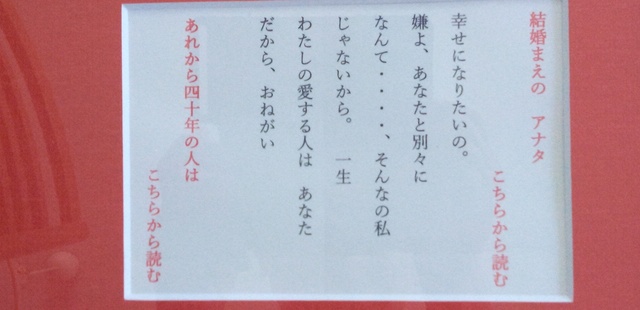 結婚まえの　アナタ
こちらから読む
幸せになりたいの。
嫌よ、あなたと別々に
なんて・・・・、そんなの私
じゃないから。　一生
わたしの愛する人は　あなた
だから、おねがい
あれから四十年の人は
こちらから読む